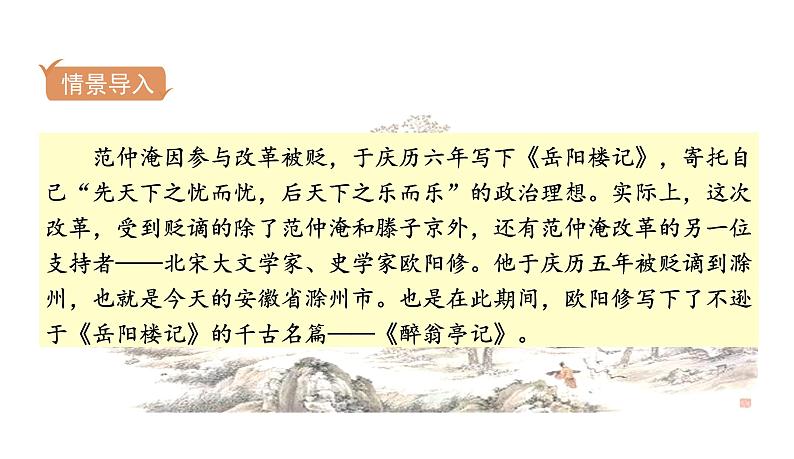 情景导入
范仲淹因参与改革被贬，于庆历六年写下《岳阳楼记》，寄托自
己“先天下之忧而忧，后天下之乐而乐”的政治理想。实际上，这次
改革，受到贬谪的除了范仲淹和滕子京外，还有范仲淹改革的另一位
支持者——北宋大文学家、史学家欧阳修。他于庆历五年被贬谪到滁
州，也就是今天的安徽省滁州市。也是在此期间，欧阳修写下了不逊
于《岳阳楼记》的千古名篇——《醉翁亭记》。